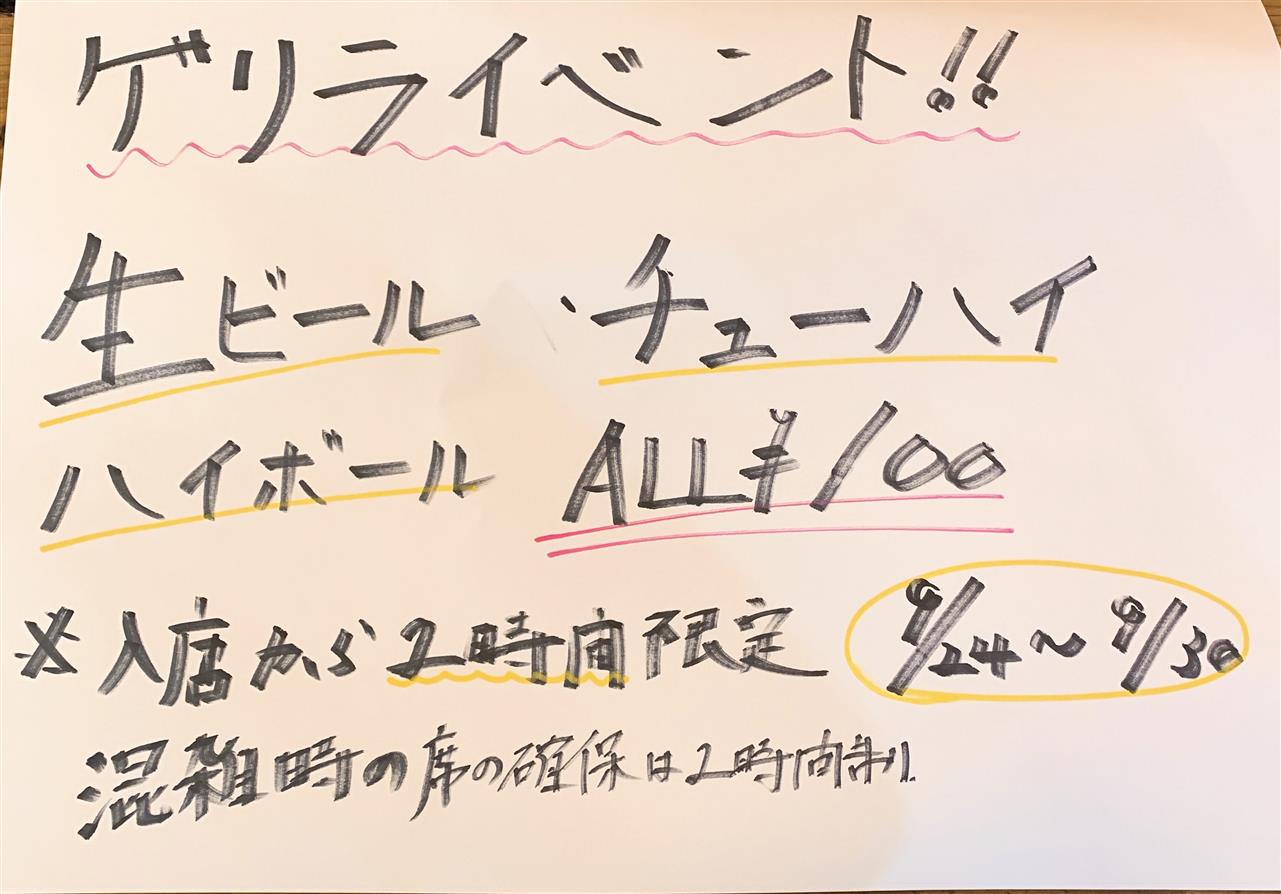 ゲリライベント!!
生ビール ・チューハイ
ハイボール ALL¥100
※入店から2時間限定 9/24〜9/30
混雑時の席の確保は2時間制